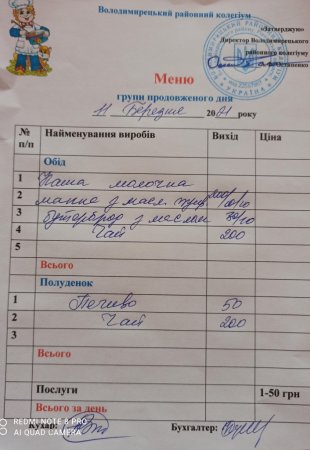 Володимирецький районний колегіум
«Затверджую»
Директор Володимирецького
районного колегіуму
Остапенко
Меню
групи продовженого дня
11 Березня 2021 року
№ п/п Найменування виробів Вихід Ціна
Обід
1 Каша молочна
2 манна з масл. 200/10/10
3 бутерброд з маслом 30/10
4 Чай 200
5
Всього
Полуденок
1 Печиво 50
2 Чай 200
3
Всього
Послуги 1-50 грн
Всього за день
Кухар:
Бухгалтер:
REDMI NOTE 8 PRO
AI QUAD CAMERA